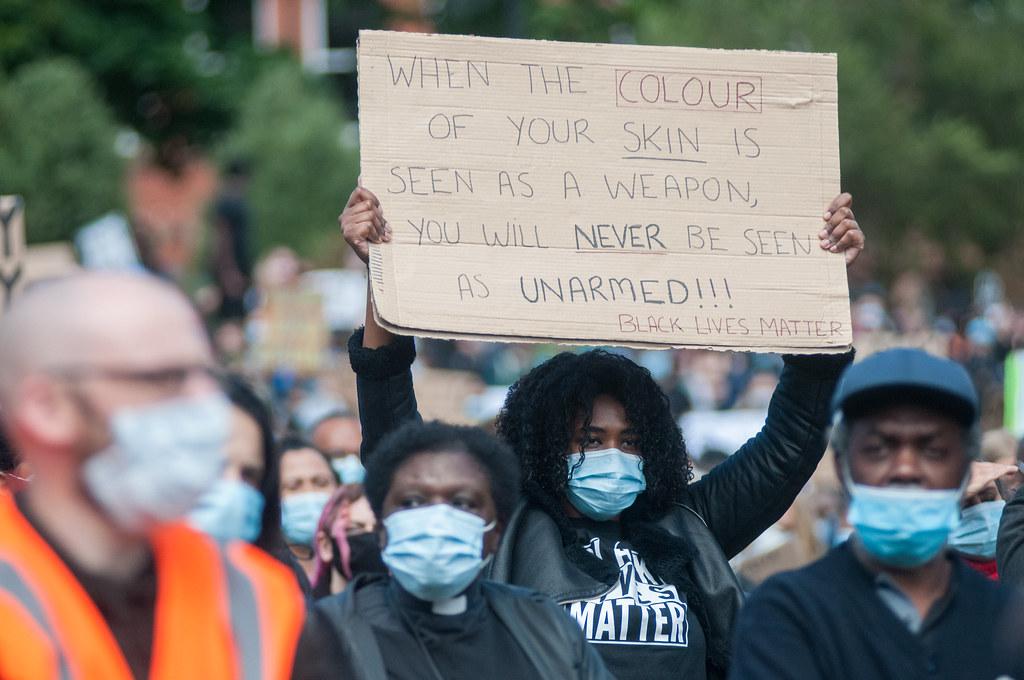 WHEN THE COLOUR
OF YOUR SKIN IS
SEEN AS A WEAPON,
YOU WILL NEVER BE SEEN
AS UNARMED!!!
BLACK LIVES MATTER
MATTER